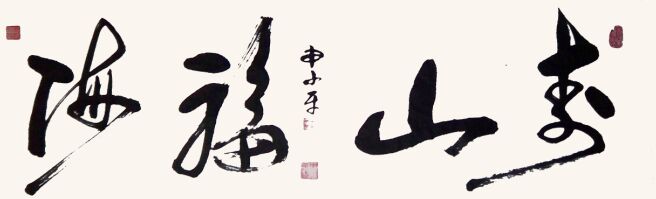 寿山福海
申小平